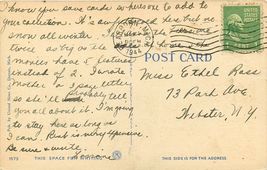 know you save cards so here's one to add to
your collection. It's awful hot here but no
snow all winter.
twice as big as the ones at home & the
movies have 5 features
instead of 2. I wrote
mother a 7 page letter
so she'll probably tell
you all about it. I'm going
to stay here as long as
I can. Rent is very expensive.
Be sure & write.
1944
POST CARD
Miss Ethel Rass
73 Park Ave.
Webster, N.Y.
1575
THIS SPACE FOR
THIS SIDE IS FOR THE ADDRESS